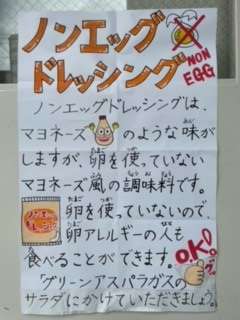 ノンエッグ
ドレッシング
NON
EGG
ノンエッグドレッシングは、
マヨネーズのような味が
しますが、卵を使っていない
マヨネーズ風の調味料です。
ノンエッグ
ドレッシング
卵を使っていないので、
卵アレルギーの人も
食べることができます。
O.K!
「グリーンアスパラガスの
サラダにかけていただきましょう。